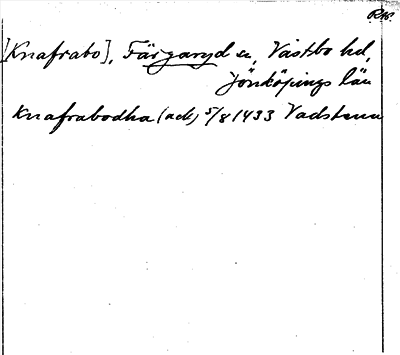 RAp.
[Knafrabo], Färgaryd sn, Västbo hd,
Jönköpings län
Knafrabodha (ack) 5/8 1433 Vadstena